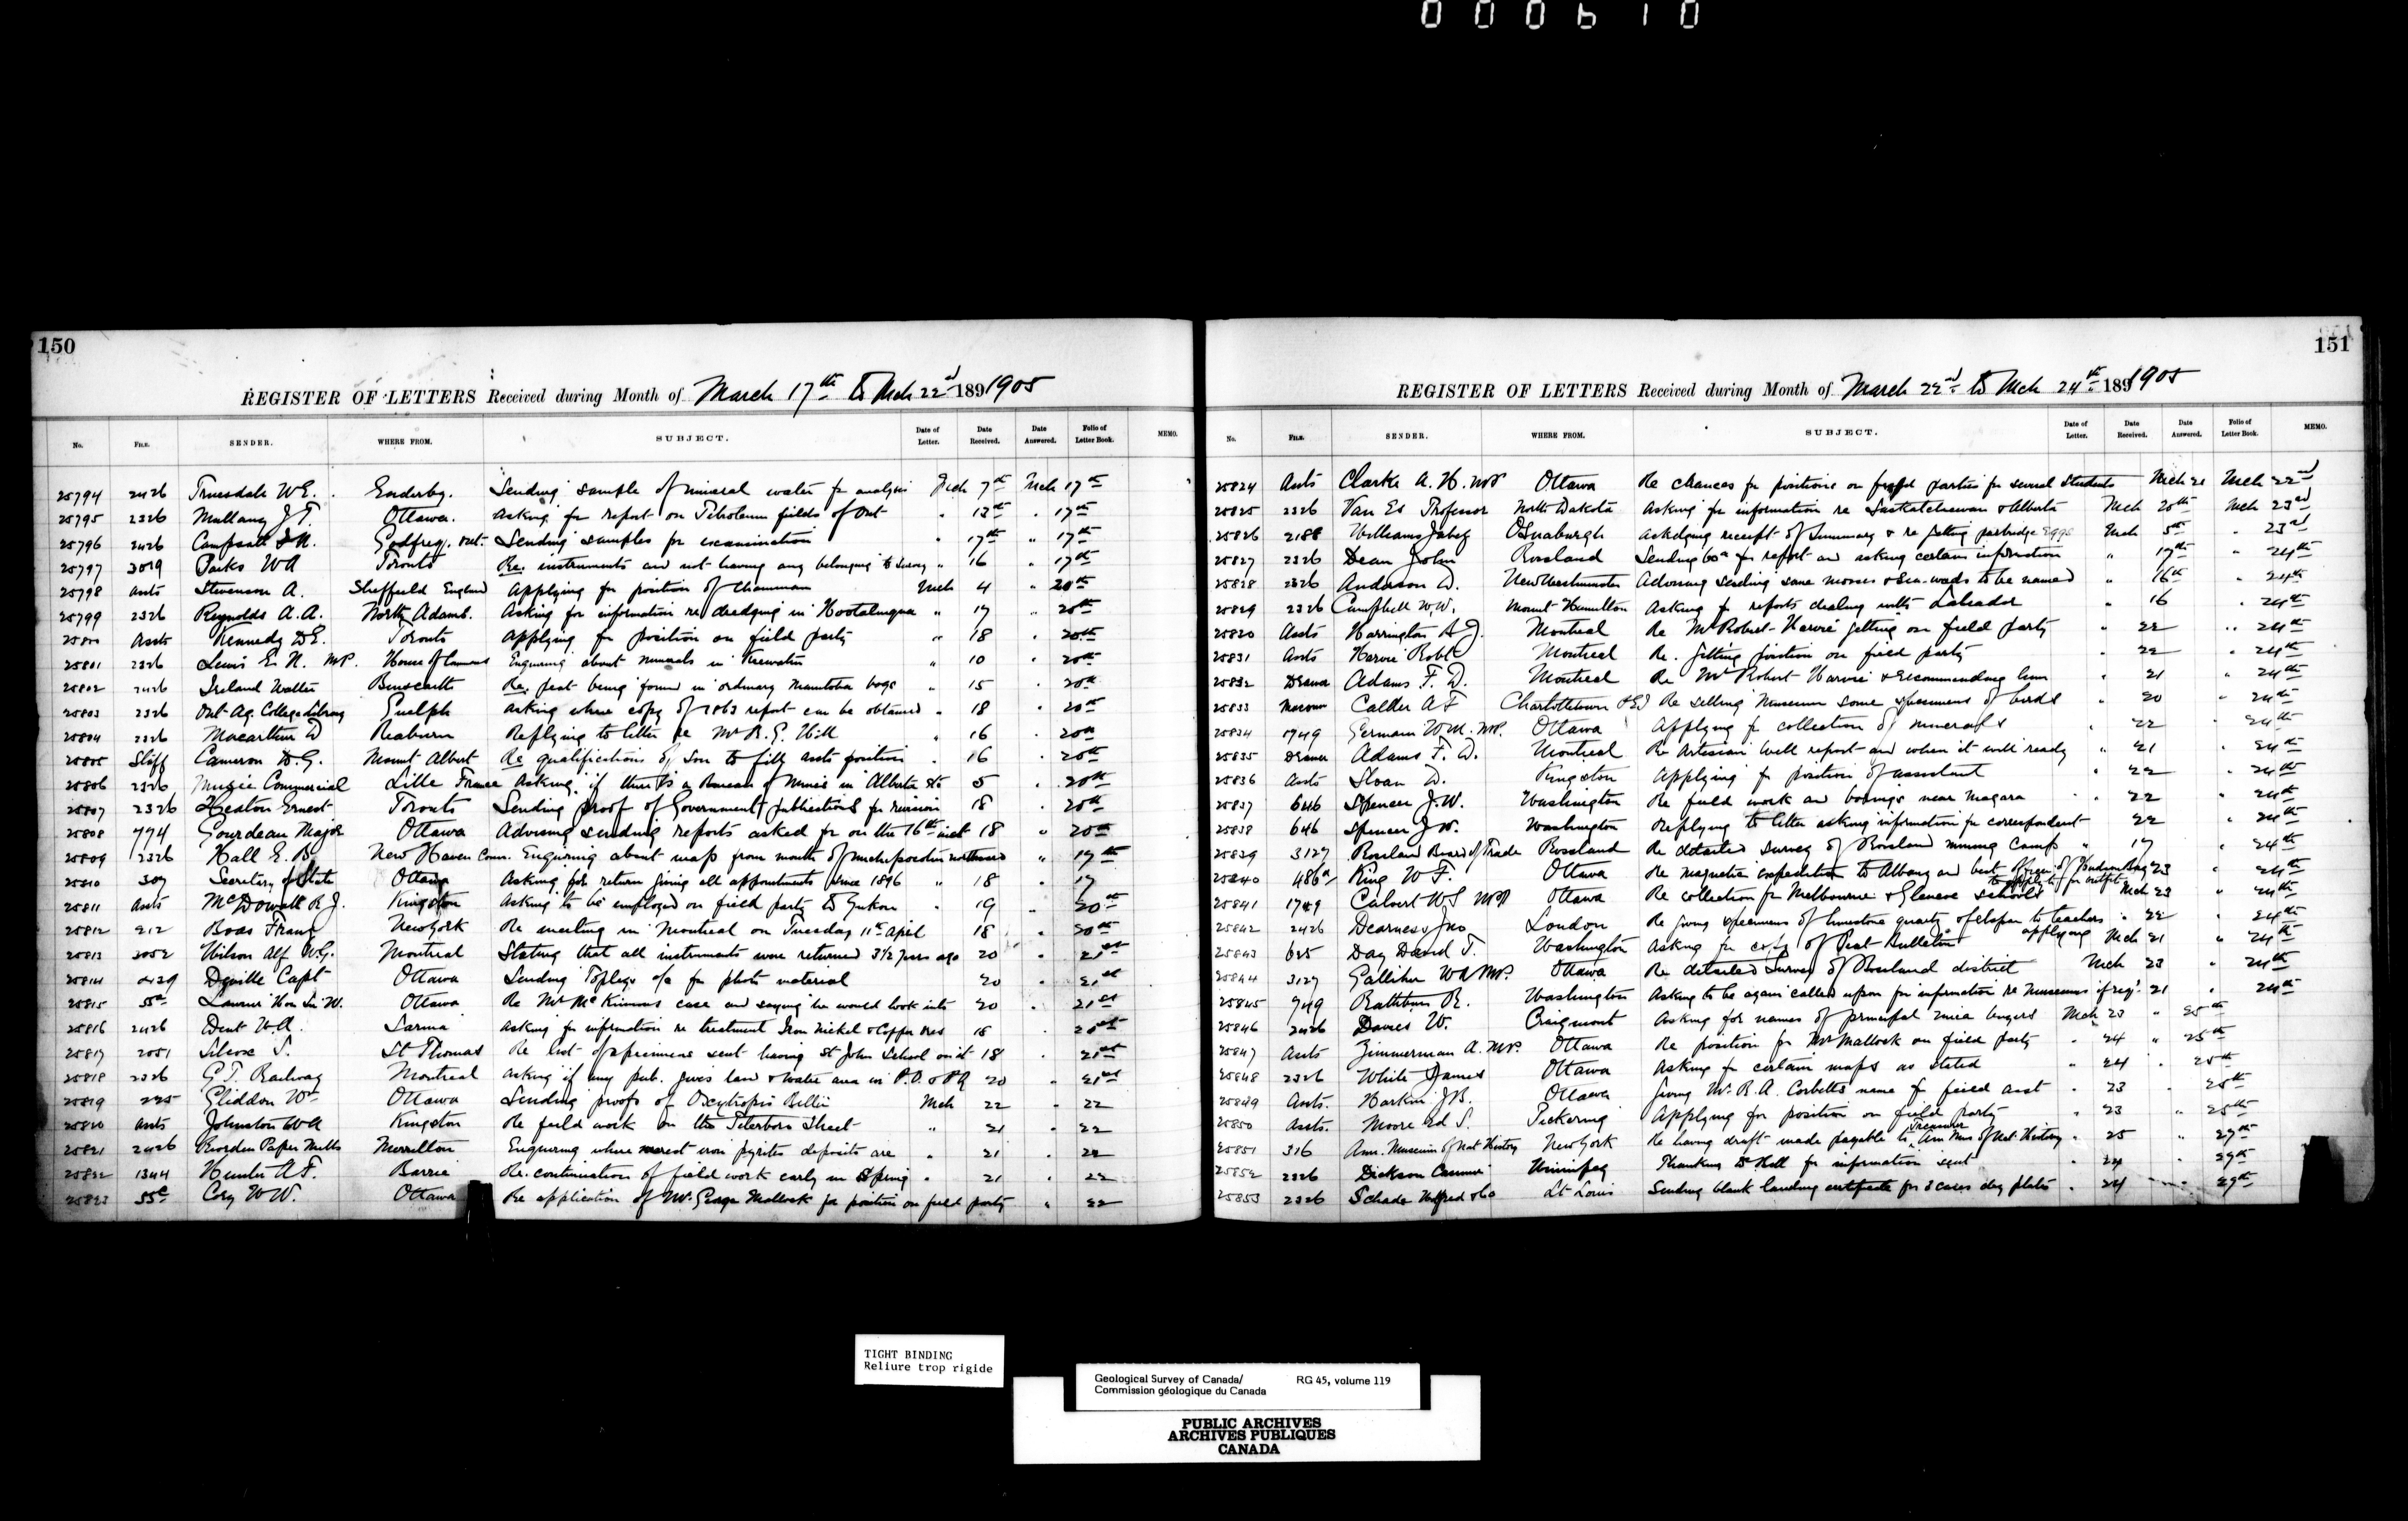 000610
150
REGISTER OF LETTERS Received during Month of March 17th to Mch 22nd 1891905
No. FILE. SENDER. WHERE FROM. SUBJECT. Date of Letter. Date Received. Date Answered. Folio of Letter Book. MEMO.
25794 2426 Truesdale W E. Enderby. Sending sample of mineral water for analysis Mch 7th Mch 17th
25795 2326 Mullany J T. Ottawa. Asking for report on Petroleum fields of Ont " 13th " 17th
25796 2426 Godfrey, Ont. Sending samples for examination " 17th " 17th
25797 3019 Parks W A Toronto Re. instruments and not having any belonging to Survey " 16 " 17th
25798 Assts Stevenson A. Sheffield England Applying for position of Chainman Mch 4 " 20th
25799 2326 Reynolds A. A. North Adams. Asking for information re dredging in Hootalinqua " 17 " 20th
25800 Assts Kennedy D E. Toronto Applying for position on field party " 18 " 20th
25801 2326 Lewis E. N. MP. House of Commons Enquiring about minerals in Keewatin " 10 " 20th
25802 2426 Ireland Walter Binscarth Re. peat being found in ordinary Manitoba bogs " 15 " 20th
25803 2326 Ont. Ag. College Library Guelph Asking where copy of 1863 report can be obtained " 18 " 20th
25804 2326 Macarthur D Reaburn Replying to letter re Mr R. E. Hill " 16 " 20th
25805 Staff Cameron D. G. Mount Albert Re qualifications of Son to fill assts position " 16 " 20th
25806 2326 Musée Commercial Lille France Asking if there is a Bureau of Mines in Alberta etc 5 " 20th
25807 2326 Heaton Ernest Toronto Sending proof of Government publications for revision 18 " 20th
25808 774 Gourdeau Major Ottawa Advising sending reports asked for on the 16th inst 18 " 20th
25809 2326 Hall E. B. New Haven Conn. Enquiring about map from mouth of northward " 17th
25810 307 Secretary of State Ottawa Asking for return giving all appointments since 1896 " 18 " 17
25811 Assts McDowall R J. Kingston Asking to be employed on field party to Yukon " 19 " 20th
25812 212 Boas Franz New York Re meeting in Montreal on Tuesday 11th April 18 " 20th
25813 2052 Wilson Alf W.G. Montreal Stating that all instruments were returned 3 1/2 years ago 20 " 21st
25814 Deville Capt Ottawa Sending Topleys a/c for photo material 20 " 21st
25815 55c Laurier Hon Sir W. Ottawa Re Mr McKinnons case and saying he would look into 20 " 21st
25816 2426 Dent W. A. Sarnia Asking for information re treatment Iron Nickel & Copper ores 18 " 21st
25817 2051 Silcox S. St Thomas Re list of specimens sent having St John School on it 18 " 21st
25818 2326 G. T. Railway Montreal Asking if any pub. gives land & water area in P.O. & PA 20 " 21st
25819 225 Gliddon Wm Ottawa Sending proofs of Oxytropis Bellii Mch 22 " 22
25820 Assts Johnston W A Kingston Re field work on the Peterboro Sheet " 21 " 22
25821 2426 Riordon Paper Mills Merritton Enquiring where nearest iron pyrites deposits are " 21 " 22
25822 1344 Hunter A F. Barrie Re. continuation of field work early in Spring " 21 " 22
25823 55c Cory W W. Ottawa Re application of Mr. George Mallock for position on field party " 22
151
REGISTER OF LETTERS Received during Month of March 22nd to Mch 24th 1891905
No. FILE. SENDER. WHERE FROM. SUBJECT. Date of Letter. Date Received. Date Answered. Folio of Letter Book. MEMO.
25824 Assts Clarke A. H. MP Ottawa Re chances for positions on field parties for several Students Mch 21 Mch 22nd
25825 2326 Van Es Professor North Dakota Asking for information re Saskatchewan & Alberta Mch 20th Mch 23rd
25826 2188 Williams Jabez Osnaburgh Ackdging receipt of Summary & re getting partridge Eggs Mch 5th " 23rd
25827 2326 Dean John Rossland Sending 60c for report and asking certain information " 17th " 24th
25828 2326 Anderson W. New Westminster Advising sending some mosses & sea-weeds to be named " 16th " 24th
25829 2326 Campbell W. W. Mount Hamilton Asking for reports dealing with Labrador " 16 " 24th
25830 Assts Harrington B J. Montreal Re Mr Robert Harvie getting on field party " 22 " 24th
25831 Assts Harvie Robt Montreal Re. getting position on field party " 22 " 24th
25832 Drawer Adams F. D. Montreal Re Mr Robert Harvie & recommending him " 21 " 24th
25833 Museum Calder A F Charlottetown PEI Re selling Museum some specimens of birds " 20 " 24th
25834 1749 Germain W M. MP. Ottawa Applying for collection of minerals " 22 " 24th
25835 Drawer Adams F. D. Montreal Re Artesian Well report and when it will ready " 21 " 24th
25836 Assts Sloan D. Kingston Applying for position of assistant " 22 " 24th
25837 646 Spencer J. W. Washington Re field work and borings near Niagara " 22 " 24th
25838 646 Spencer J W. Washington Replying to letter asking information for correspondent 22 " 24th
25839 3127 Rossland Board of Trade Rossland Re detailed survey of Rossland mining camp " 17 " 24th
25840 486a King W F. Ottawa Re magnetic expedition to Albany and best of Hudson Bay 23 " 24th
to apply to for outfit
25841 1749 Calvert W S MP Ottawa Re collection for Melbourne & Glencoe schools Mch 23 " 24th
25842 2426 Dearness Jno London Re giving specimens of limestone quartz & felspar to teachers " 22 " 24th
applying
25843 625 Day David T. Washington Asking for copy of Peat Bulletin Mch 21 " 24th
25844 3127 Galliher W A MP. Ottawa Re detailed Survey of Rossland district Mch 23 " 24th
25845 749 Rathbun R. Washington Asking to be again called upon for information re Museums if reqd. 21 " 24th
25846 2426 Davies W. Craigmont Asking for names of principal mica buyers Mch 23 " 25th
25847 Assts Zimmerman A. MP. Ottawa Re position for Mr Mallock on field party " 24 " 25th
25848 2326 White James Ottawa Asking for certain maps as stated " 24 " 25th
25849 Assts. Harkin J B. Ottawa Giving Mr. R. A. Corbetts name for field asst " 23 " 25th
25850 Assts. Moore Ed S. Pickering Applying for position on field party " 23 " 25th
Treasurer
25851 316 Am. Museum of Nat History New York Re having draft made payable to Am Mus of Nat. History " 25 " 27th
25852 2326 Dickson Winnipeg Thanking Dr Bell for information sent " 24 " 27th
25853 2326 Schade Wilfred & Co St Louis Sending blank landing certificate for 2 cases dry plates " 24 " 27th
TIGHT BINDING
Reliure trop rigide
Geological Survey of Canada/ RG 45, volume 119
Commission géologique du Canada
PUBLIC ARCHIVES
ARCHIVES PUBLIQUES
CANADA